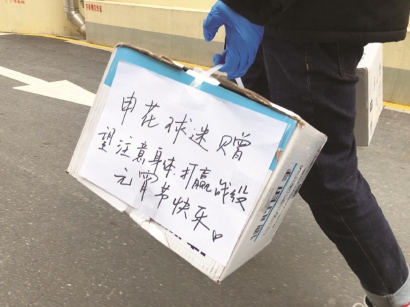 申花球迷赠
望注意身体.打赢战役
元宵节快乐♡